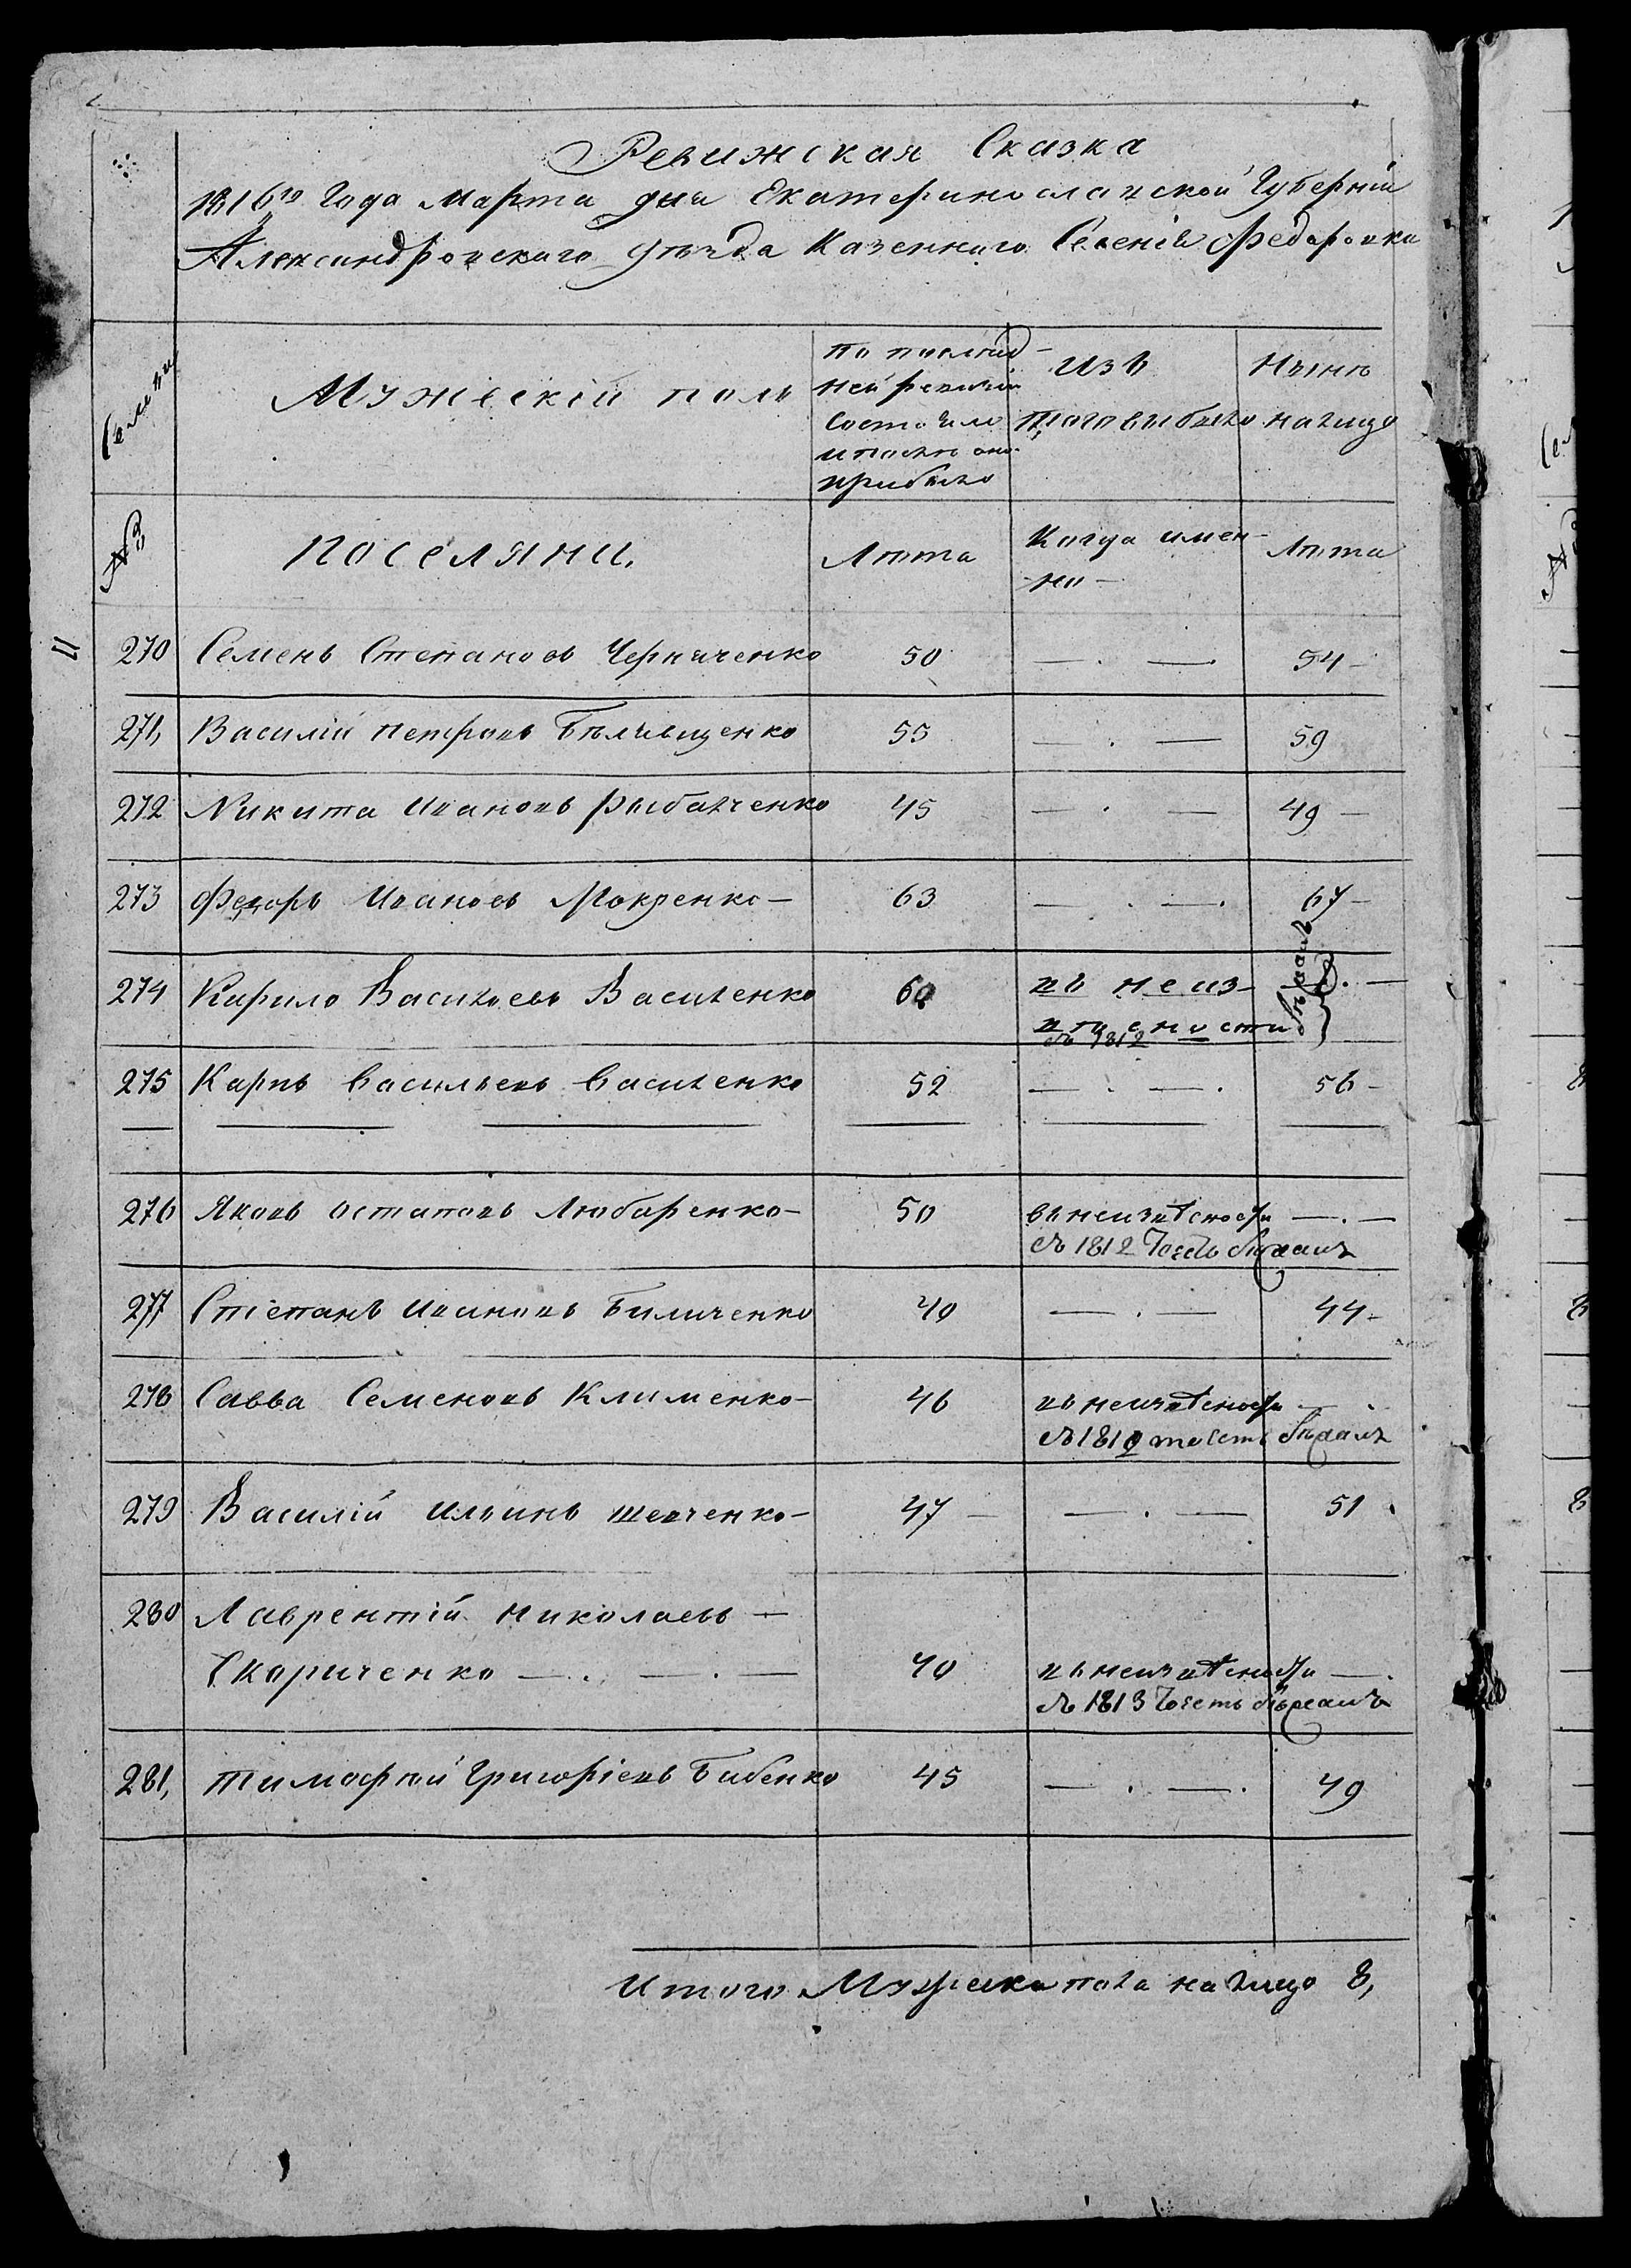 Ревижская Сказка
1816го Года Марта дня Екатеринославской Губерніи
Александровскаго уѣзда Казеннаго Селенія Федоровки
Семьи
Мужескій полъ
по послѣд-
ней ревизіи
состояло
и послѣ оно
прибыло
Изъ
того выбыло
Нынѣ
на лицо
№
поселяни.
Лѣта
Когда имен-
но —
Лѣта
11
270 Семенъ Степановъ Черняченко 50 — . — . 54 —
271, Василій Петровъ 55 — . — 59
272 Никита Ивановъ Рыбалченко 45 — . — 49 —
273 Федоръ Ивановъ Мокренко — 63 — . — . 67 —
274 Кирило Васильевъ Василенко 60 въ неиз- — . —
вѣсности
съ 1812
бѣжалъ
275 Карпъ Васильевъ Василенко 52 — . — . 56 —
276 Яковъ Остаповъ Любаренко — 50 въ неизвѣсности — . —
съ 1812 тоесть бѣжалъ
277 Степанъ Ивановъ Биличенко 40 — . — 44 —
278 Савва Семеновъ Клименко — 46 въ неизвѣсности — .
съ 1812 тоесть бѣжалъ
279 Василій Ильинъ Шевченко — 47 — — . — 51
280 Лаврентій Николаевъ —
Скориченко — . — . — 40 въ неизвѣсности — .
съ 1813 тоесть бѣжалъ
281, Тимофѣй Григоріевъ Бабенко 45 — . — . 49
Итого Мужеска пола на лицо 8,